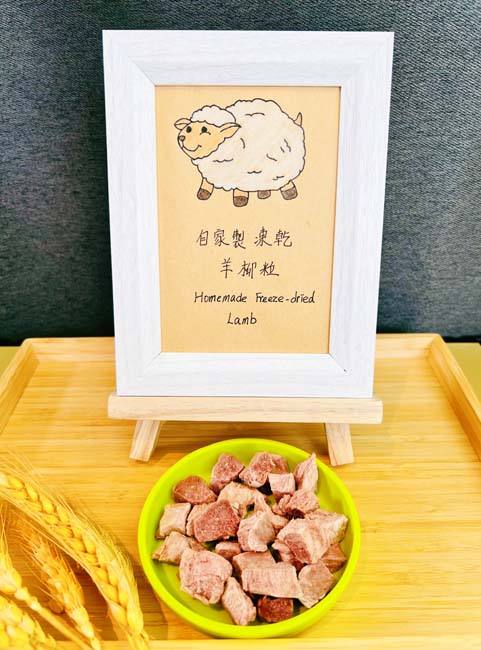 自家製 凍乾
羊柳粒
Homemade Freeze-dried
Lamb